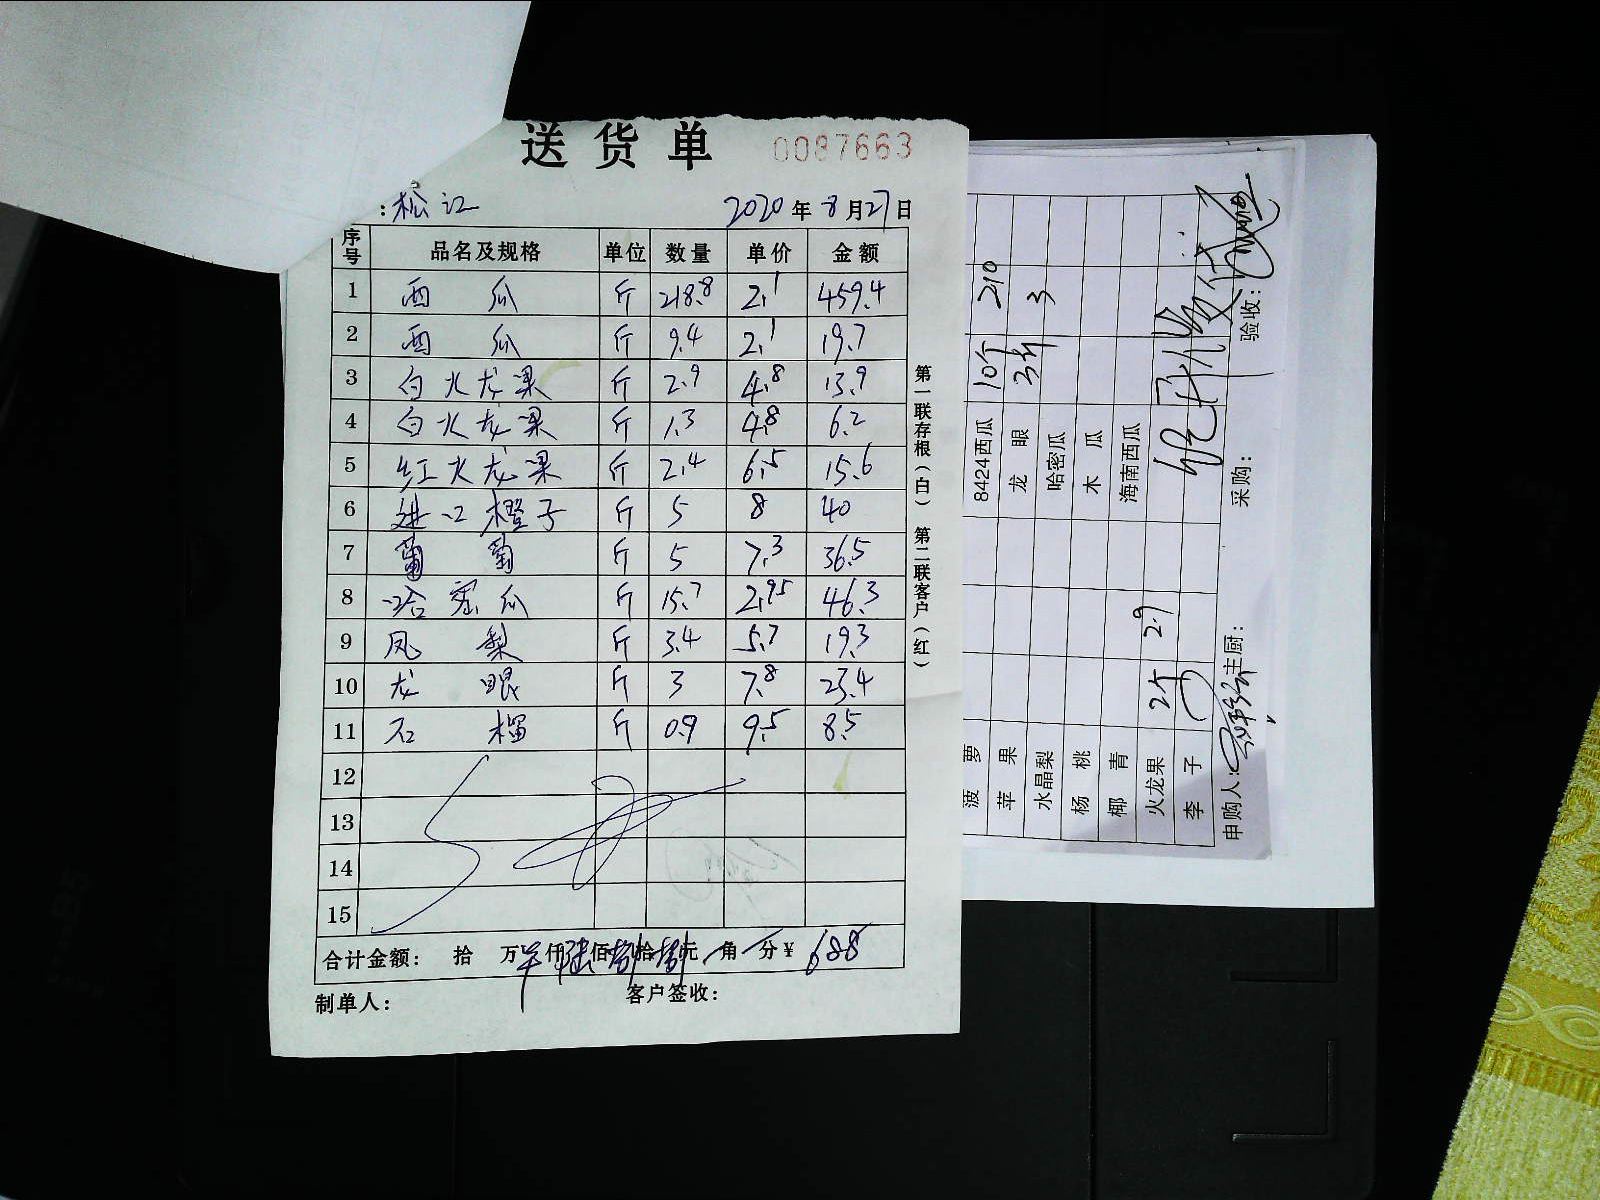 送货单 0087663
:松江 2020年8月27日
序号 品名及规格 单位 数量 单价 金额
1 西瓜 斤 218.8 2.1 459.4
2 西瓜 斤 9.4 2.1 19.7
3 白火龙果 斤 2.9 4.8 13.9
4 白火龙果 斤 1.3 4.8 6.2
5 红火龙果 斤 2.4 6.5 15.6
6 进口橙子 斤 5 8 40
7 葡萄 斤 5 7.3 36.5
8 哈密瓜 斤 15.7 2.95 46.3
9 凤梨 斤 3.4 5.7 19.3
10 龙眼 斤 3 7.8 23.4
11 石榴 斤 0.9 9.5 8.5
12
13
14
15
合计金额: 拾 万 仟陆佰捌拾捌元 角 分¥ 688
制单人: 客户签收:
第一联存根(白) 第二联客户(红)
菠萝 8424西瓜 10个 210
苹果 龙眼 3斤 3
水晶梨 哈密瓜
杨桃 木瓜
椰青 海南西瓜
火龙果 2个 2.9
李子
申购人: 主厨: 采购: 验收: